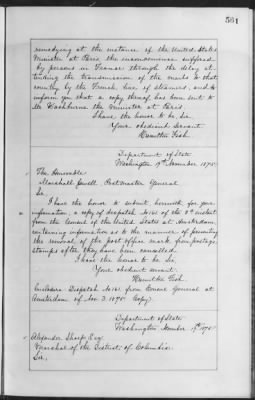 561
remedying at the instance of the United States
Minister at Paris, the inconvenience suffered
by persons in France through the delay at-
tending the transmission of the mails to that
country by the French line of steamers, and to
inform you that a copy thereof has been sent to
Mr Washburne the Minister at Paris.
I have the honor to be, Sir
Your obedient servant
Hamilton Fish
Department of State
Washington 19th November 1875
The Honorable
Marshall Jewell Postmaster General
Sir
I have the honor to submit herewith for your
information, a copy of despatch No 161 of the 3d instant
from the Consul of the United States at Amsterdam,
containing information as to the manner of preventing
the removal of the post office mark from postage
stamps after they have been cancelled.
I have the honor to be Sir
Your obedient servant
Hamilton Fish
Enclosure Despatch No 161 from Consul General at
Amsterdam of Nov. 3. 1875 Copy.
Department of State
Washington November 19th 1875
Alexander Sharp Esq
Marshal of the District of Columbia
Sir,